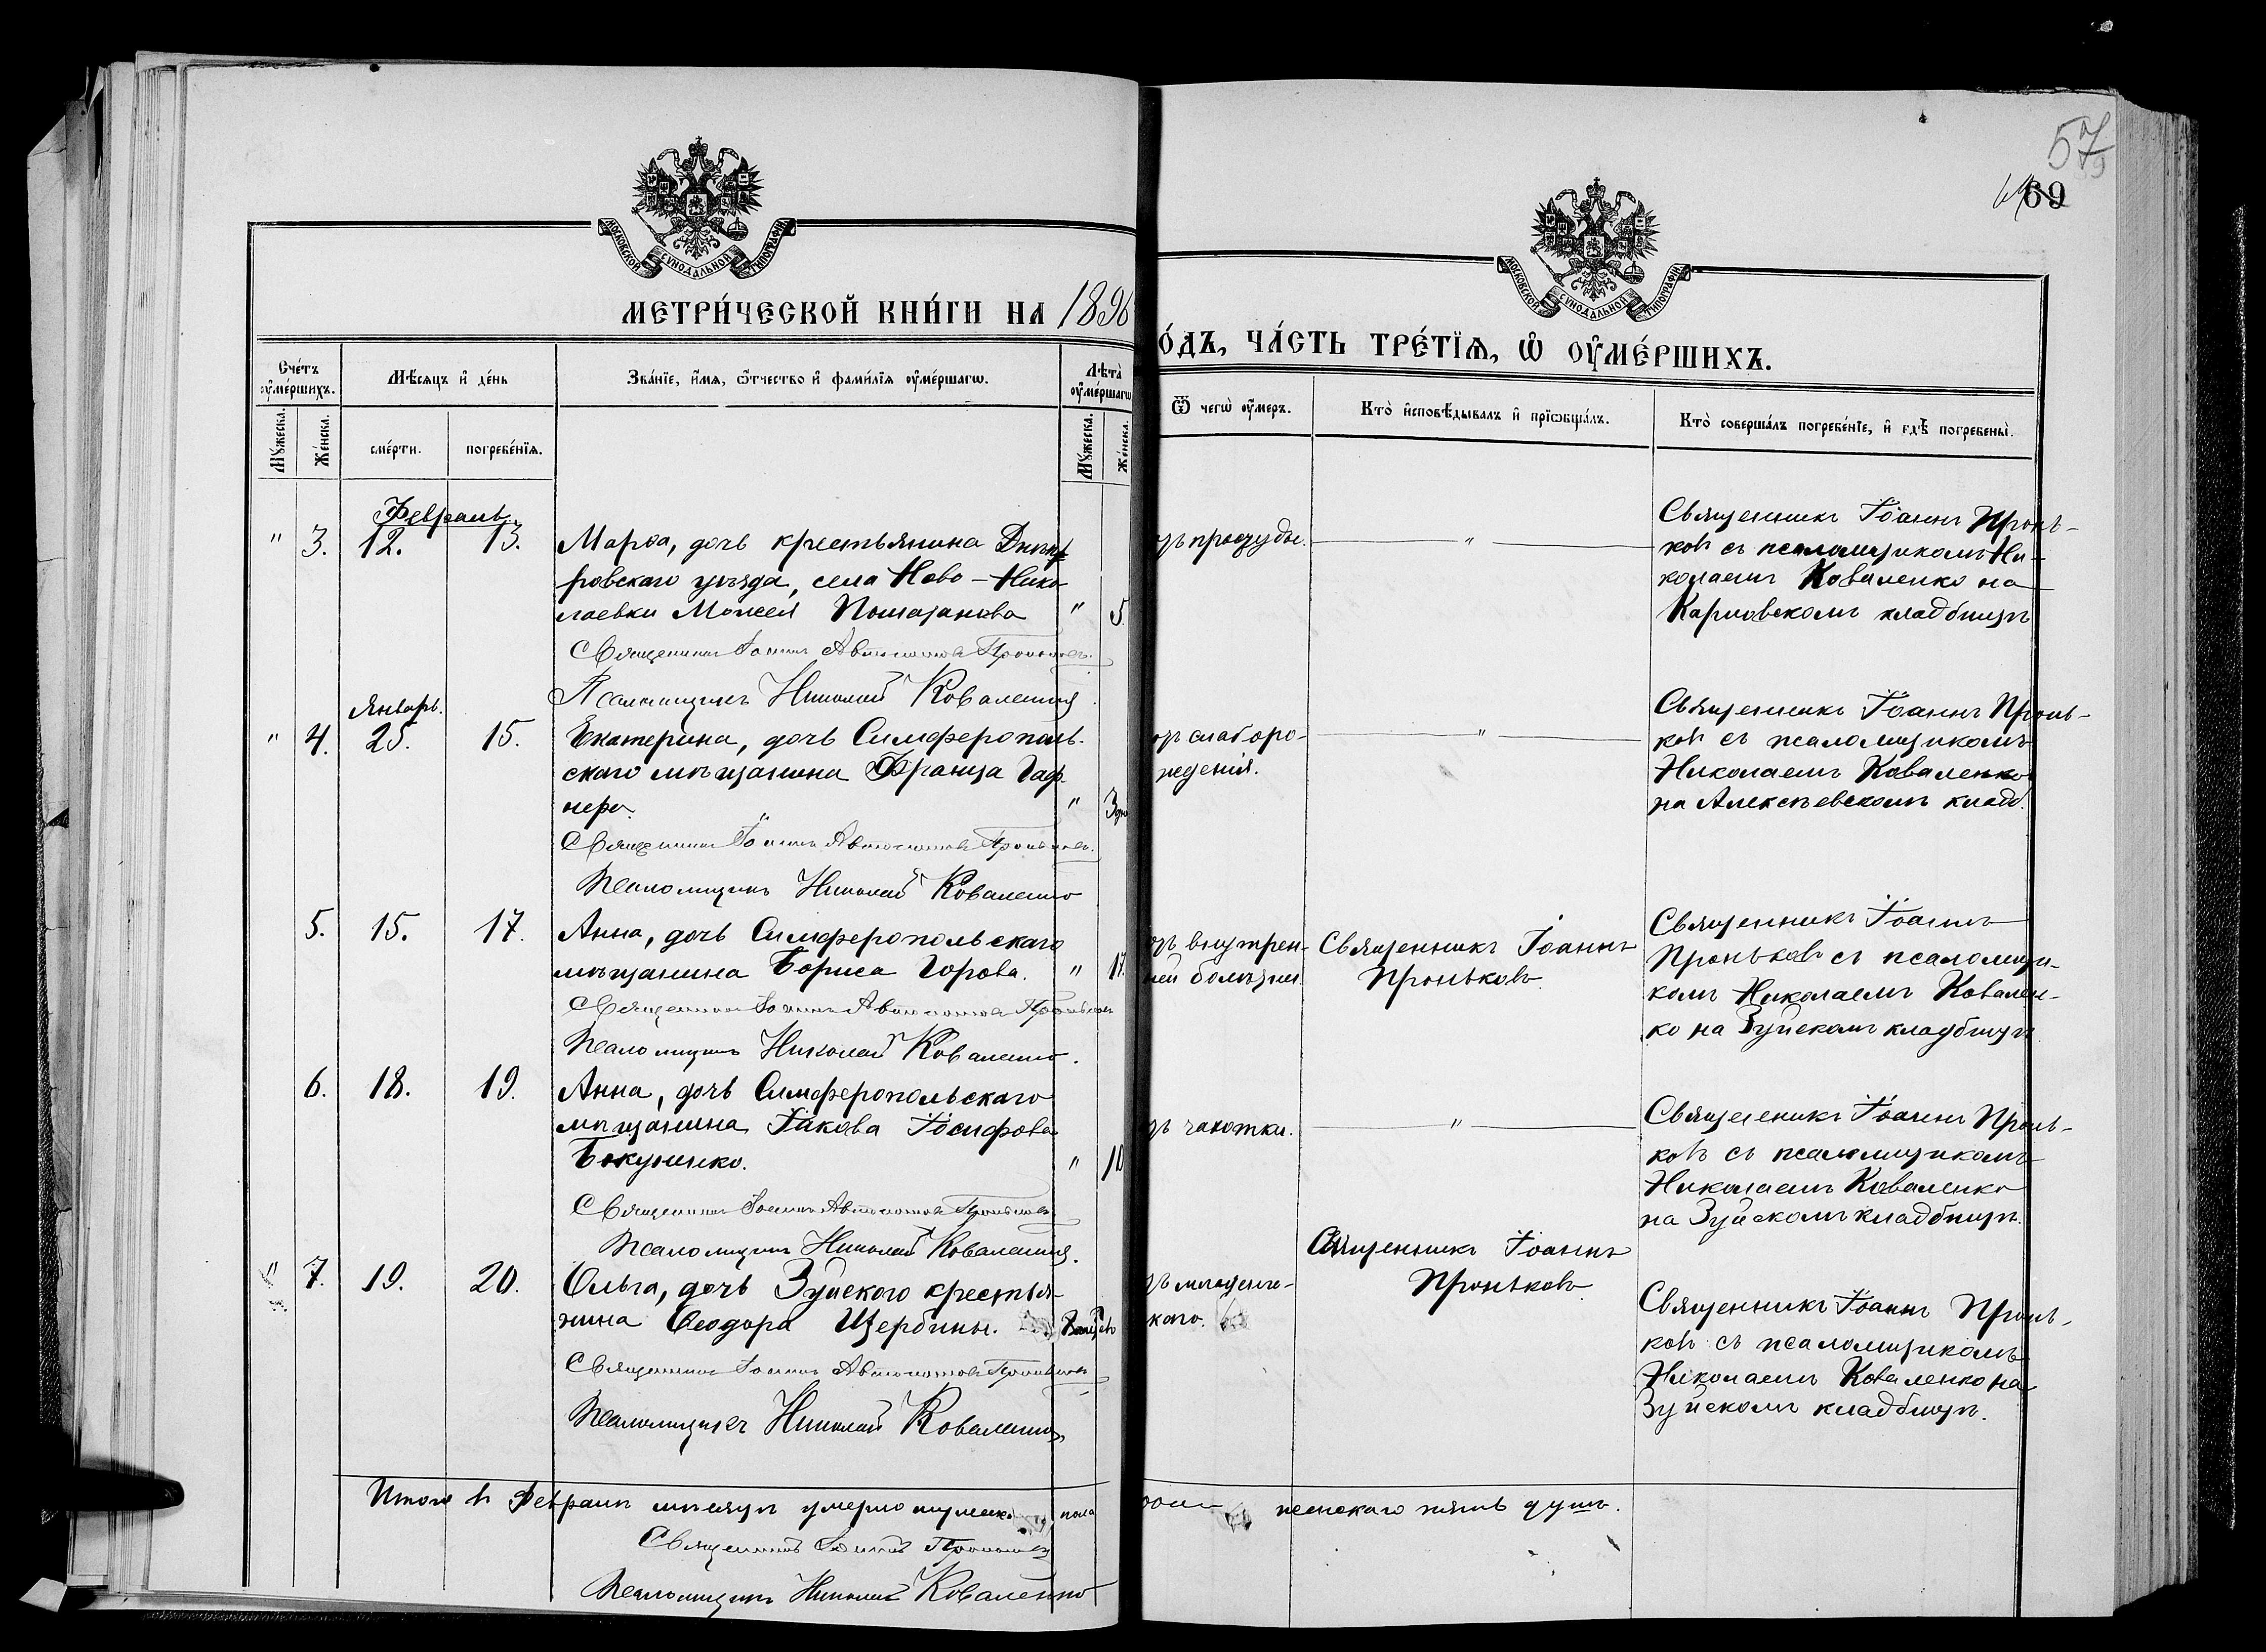 57
69
МОСКОВСКОЙ СѴНОДАЛЬНОЙ ТИПОГРАФІИ
МОСКОВСКОЙ СѴНОДАЛЬНОЙ ТИПОГРАФІИ
МЕТРИ́ЧЕСКОЙ КНИ́ГИ НА 1896
О́ДЪ, ЧА́СТЬ ТРЕ́ТЇѦ, Ѡ҆ ОУ҆МЕ́РШИХЪ.
Сче́тъ оу҆ме́ршихъ.
Мѣ́сяцъ и҆ де́нь
Зва́нїе, и҆́мѧ, ѻ҆́тчество и҆ фами́лїѧ оу҆ме́ршагѡ.
Лѣта̀ оу҆ме́ршагѡ
Ѿ чегѡ̀ оу҆́меръ.
Кто̀ и҆сповѣ́дывалъ и҆ прїѡбща́лъ.
Кто̀ соверша́лъ погребе́нїе, и҆ гдѣ̀ погребены̀.
Мꙋ́жеска.
Же́нска.
сме́рти.
погребе́нїѧ.
Мꙋ́жеска.
Же́нска.
Февраль
" 3. 12. 13. Марѳа, дочь крестьянина Днѣп-
ровскаго уѣзда, села Ново-Нико
лаевки Моисея " 5
Священникъ Іоаннъ Автономовъ Проньковъ.
Псаломщикъ Николай Коваленко
отъ простуды.
"
Священникъ Іоаннъ Пронь-
ковъ съ псаломщикомъ Ни-
колаемъ Коваленко на
Карповскомъ кладбищѣ
Январь.
" 4. 25. 15. Екатерина, дочь Симферополь-
скаго мѣщанина Франца Гаф
нера. " 3 дн
Священникъ Іоаннъ Автономовъ Проньковъ.
Псаломщикъ Николай Коваленко
отъ слаборо-
жденія.
"
Священникъ Іоаннъ Пронь-
ковъ съ псаломщикомъ
Николаемъ Коваленко
на Алексѣевскомъ кладб.
5. 15. 17. Анна, дочь Симферопольскаго
мѣщанина Бориса Горова. " 17.
Священникъ Іоаннъ Автономовъ Проньковъ
Псаломщикъ Николай Коваленко.
отъ внутрен-
ней болѣзни.
Священникъ Іоаннъ
Проньковъ.
Священникъ Іоаннъ
Проньковъ съ псаломщи-
комъ Николаемъ Ковален-
ко на Зуйскомъ кладбищѣ
6. 18. 19. Анна, дочь Симферопольскаго
мѣщанина Іакова Іосифова
" 10
Священникъ Іоаннъ Автономовъ Проньковъ
Псаломщикъ Николай Коваленко.
отъ чахотки.
"
Священникъ Іоаннъ Пронь-
ковъ съ псаломщикомъ
Николаемъ Коваленко
на Зуйскомъ кладбищѣ.
" 7. 19. 20. Ольга, дочь Зуйского крестья-
нина Ѳеодора Щербины.
Священникъ Іоаннъ Автономовъ Проньковъ
Псаломщикъ Николай Коваленко
отъ младенче-
скаго.
Священникъ Іоаннъ
Проньковъ
Священникъ Іоаннъ Пронь-
ковъ съ псаломщикомъ
Николаемъ Коваленко на
Зуйскомъ кладбищѣ.
Итого въ Февралѣ мѣсяцѣ умерло мужск. пола
женскаго пять душъ.
Священникъ Іоаннъ Проньковъ
Псаломщикъ Николай Коваленко